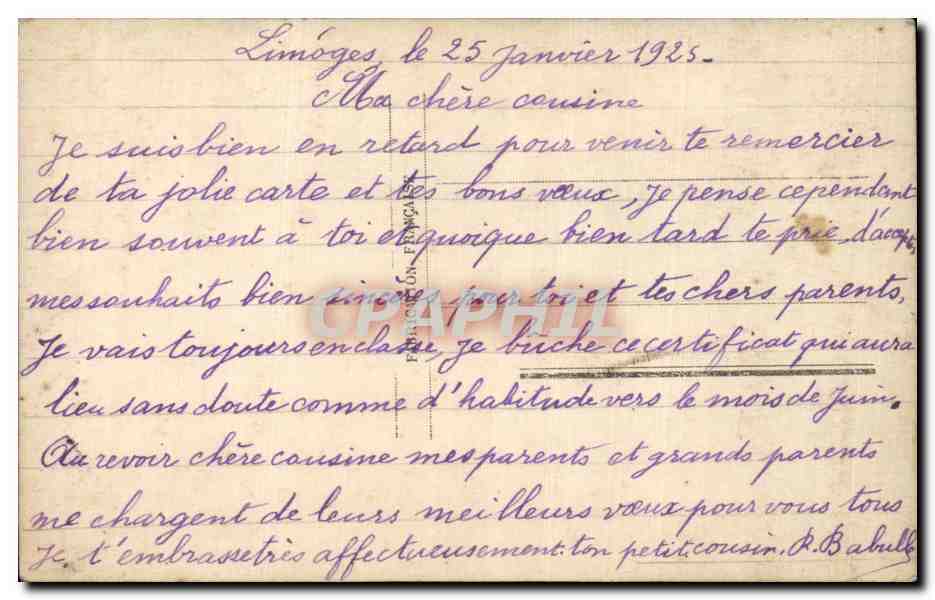 Limoges, le 25 Janvier 1925.
Ma chère cousine
Je suis bien en retard pour venir te remercier
de ta jolie carte et tes bons vœux, je pense cependant
bien souvent à toi et quoique bien tard te prie d'accept,
mes souhaits bien sincères pour toi et tes chers parents,
Je vais toujours en classe, je bûche ce certificat qui aura
lieu sans doute comme d'habitude vers le mois de Juin.
Au revoir chère cousine mes parents et grands parents
me chargent de leurs meilleurs vœux pour vous tous
Je t'embrasse très affectueusement. ton petit cousin. R.
FABRICATION FRANÇAISE
CPAPHIL